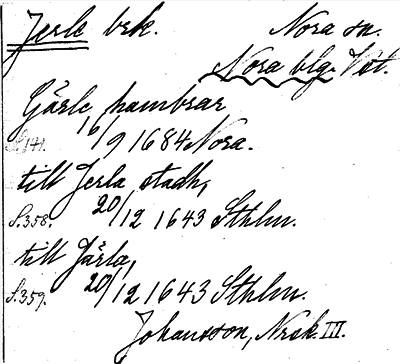 Jerle brk. Nora sn.
Nora blg. Vst.
Gärle hambrar
S.141. 16/9 1684 Nora.
till Jerla stadh,
S.358. 20/12 1643 Sthlm.
till Järla,
S.359. 20/12 1643 Sthlm.
Johansson, Nrsk. III.